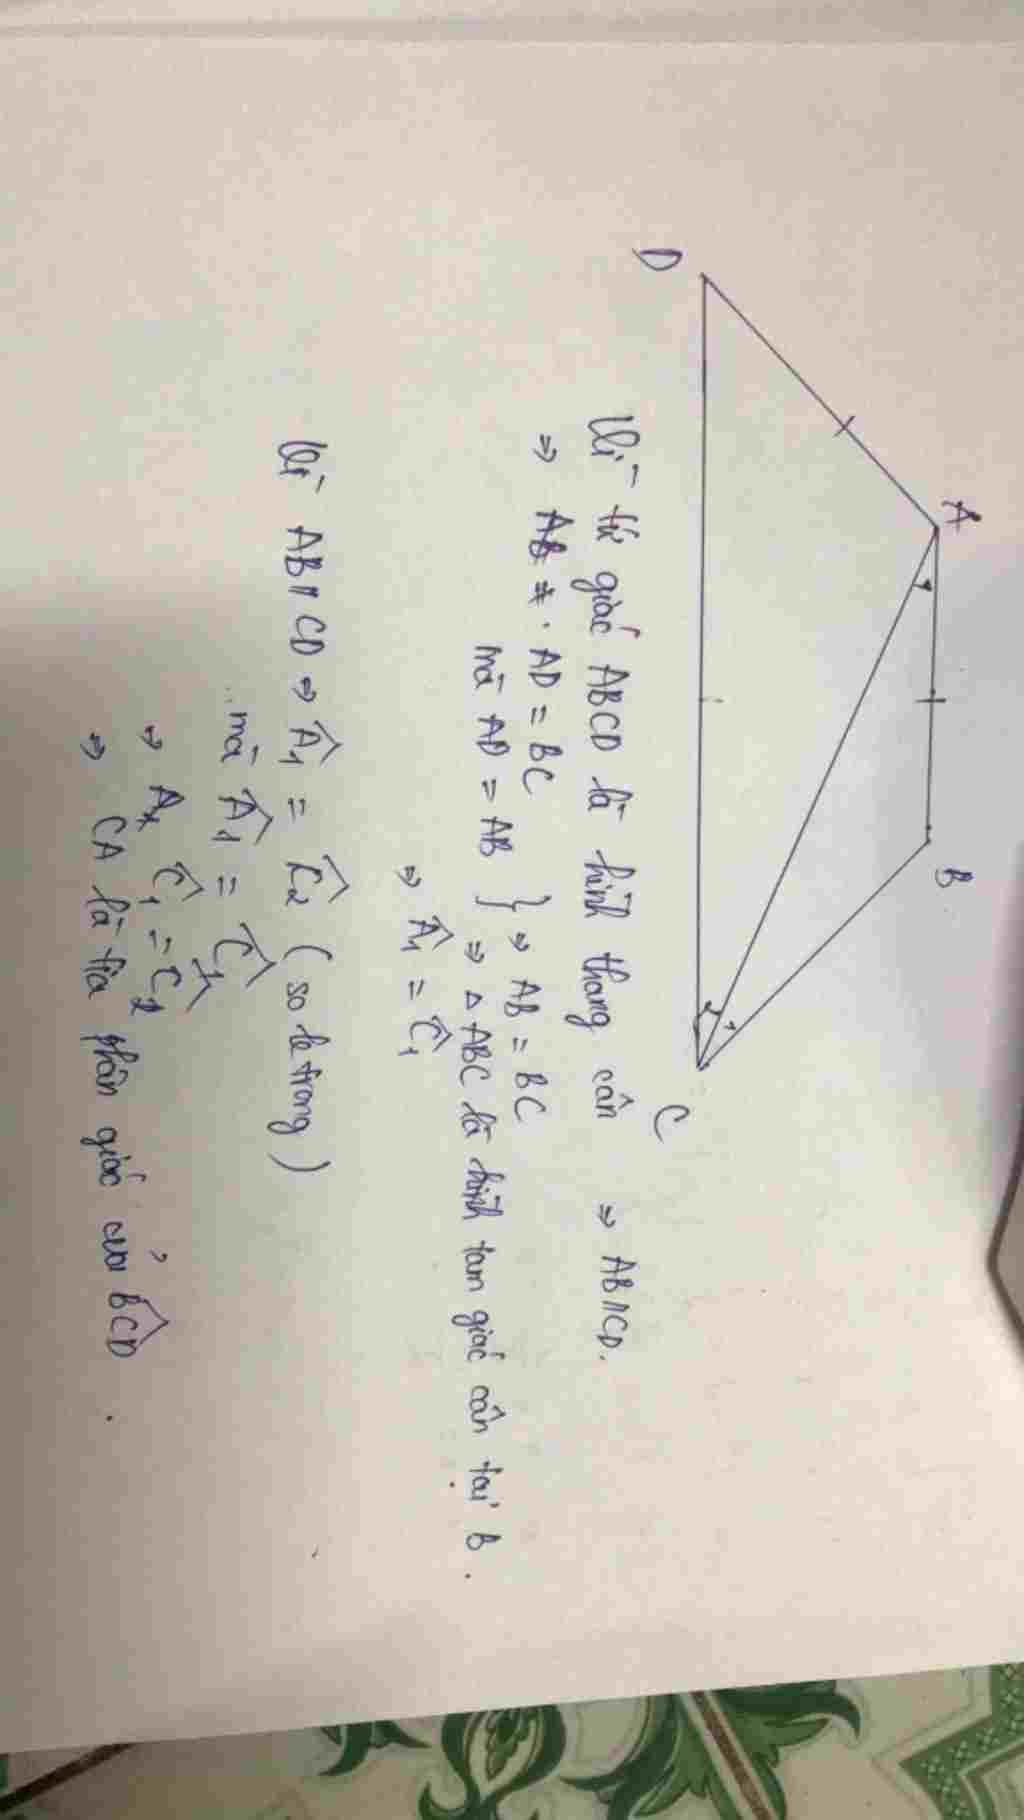 A
B
1
1
2
D
C
Vì tứ giác ABCD là hình thang cân ⇒ AB // CD.
⇒ AD = BC
mà AD = AB } ⇒ AB = BC
⇒ △ ABC là hình tam giác cân tại B.
⇒ Â₁ = Ĉ₁
Vì AB // CD ⇒ Â₁ = Ĉ₂ (so le trong)
mà Â₁ = Ĉ₁
⇒ Ĉ₁ = Ĉ₂
⇒ CA là tia phân giác của BCD̂.